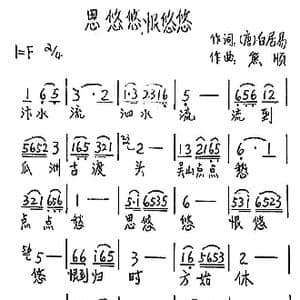 思悠悠,恨悠悠
1=F 2/4 作词:(唐)白居易
作曲:熊顺
1 6 5 | 3 · 2 | 1·3 2316 | 5 — | 656 12 |
汴水 流 泗水 流 流到
5652 3 | 165 321 | 2 — | 13 2165 | 6 · 1 |
瓜洲 古渡 头 吴山点点 愁
321 656 | 1 — | 5·1 6535 | 6 — | 531 6523 |
点点 愁 思悠 悠 恨悠
5 — | 66 165 | 3 — | 16 5653 | 2 — |
悠 恨到归 时 方始 休